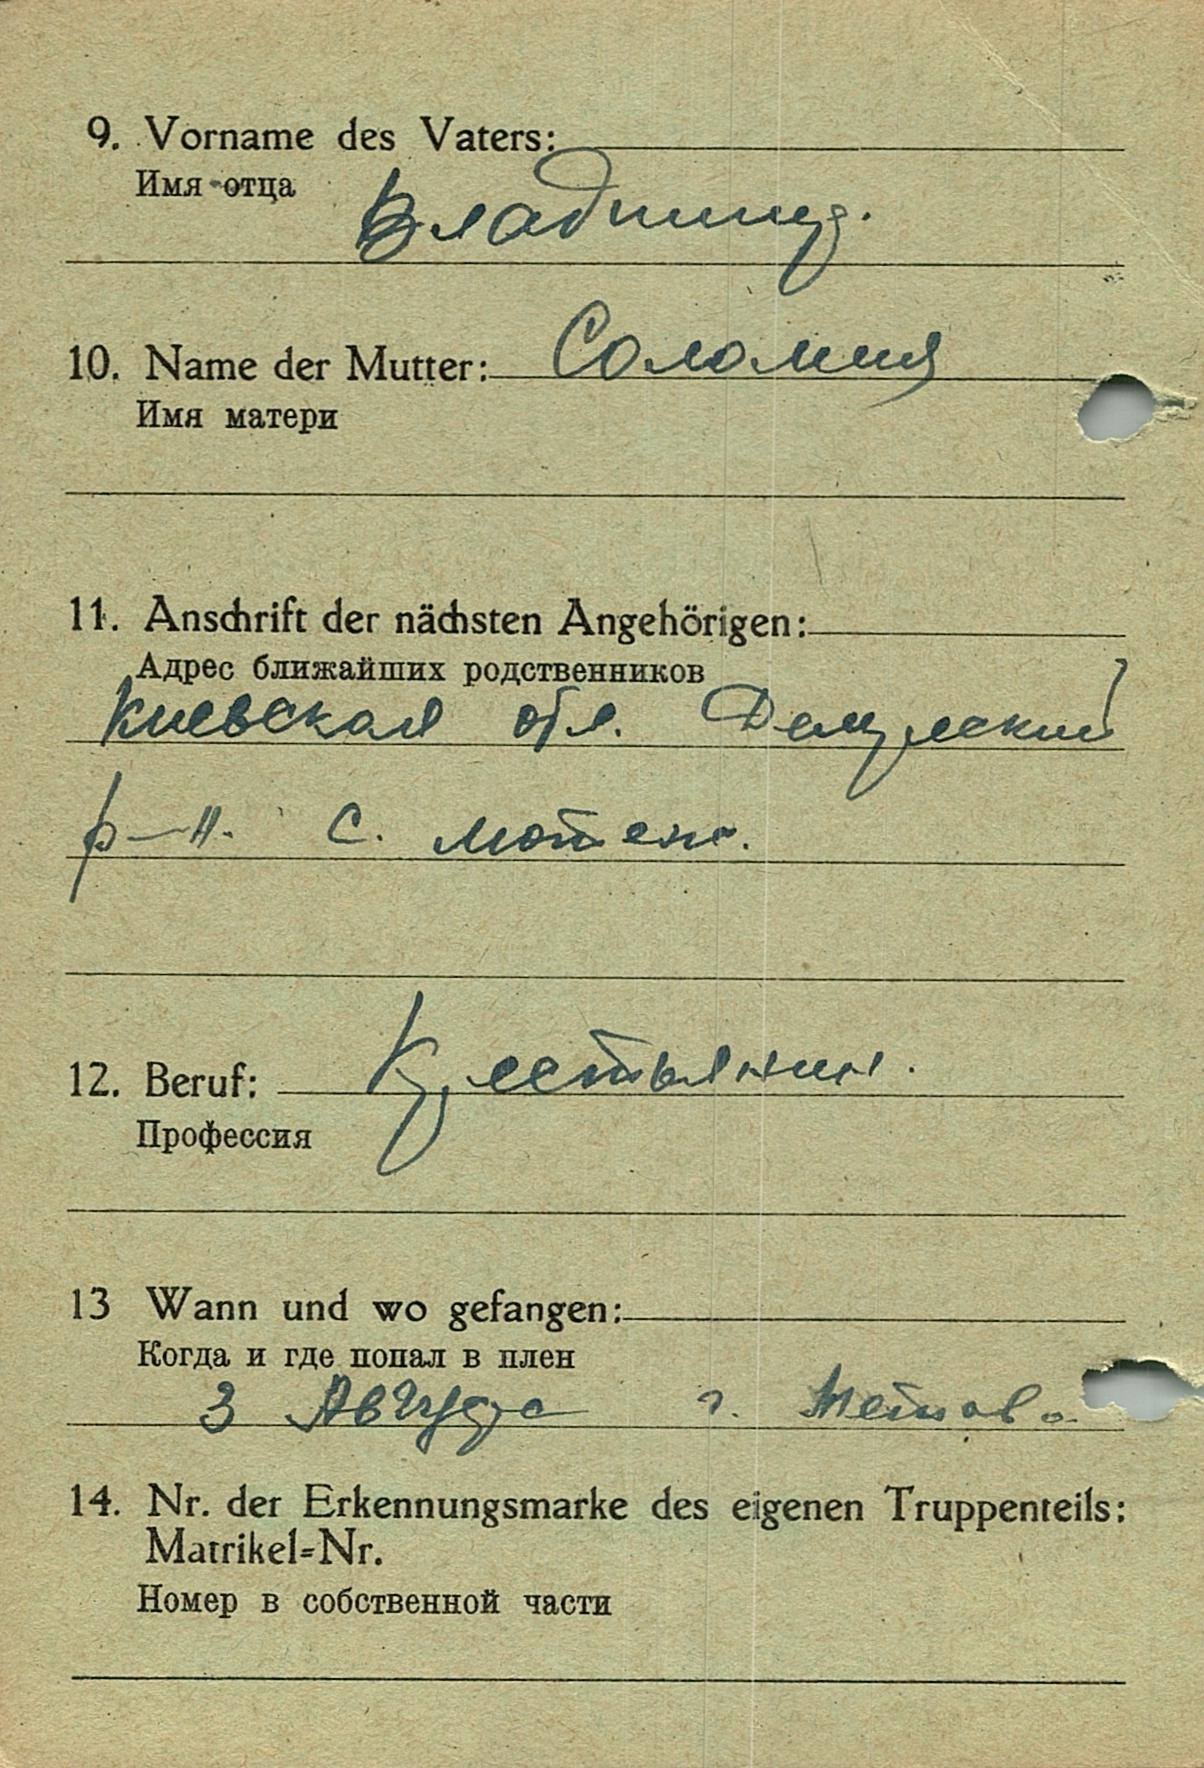 9. Vorname des Vaters:
Имя отца
Владимир.
10. Name der Mutter: Соломия
Имя матери
11. Anschrift der nächsten Angehörigen:
Адрес ближайших родственников
Киевская обл.
р-н. с.
12. Beruf: Крестьянин.
Профессия
13 Wann und wo gefangen:
Когда и где попал в плен
3 Августа г.
14. Nr. der Erkennungsmarke des eigenen Truppenteils:
Matrikel=Nr.
Номер в собственной части